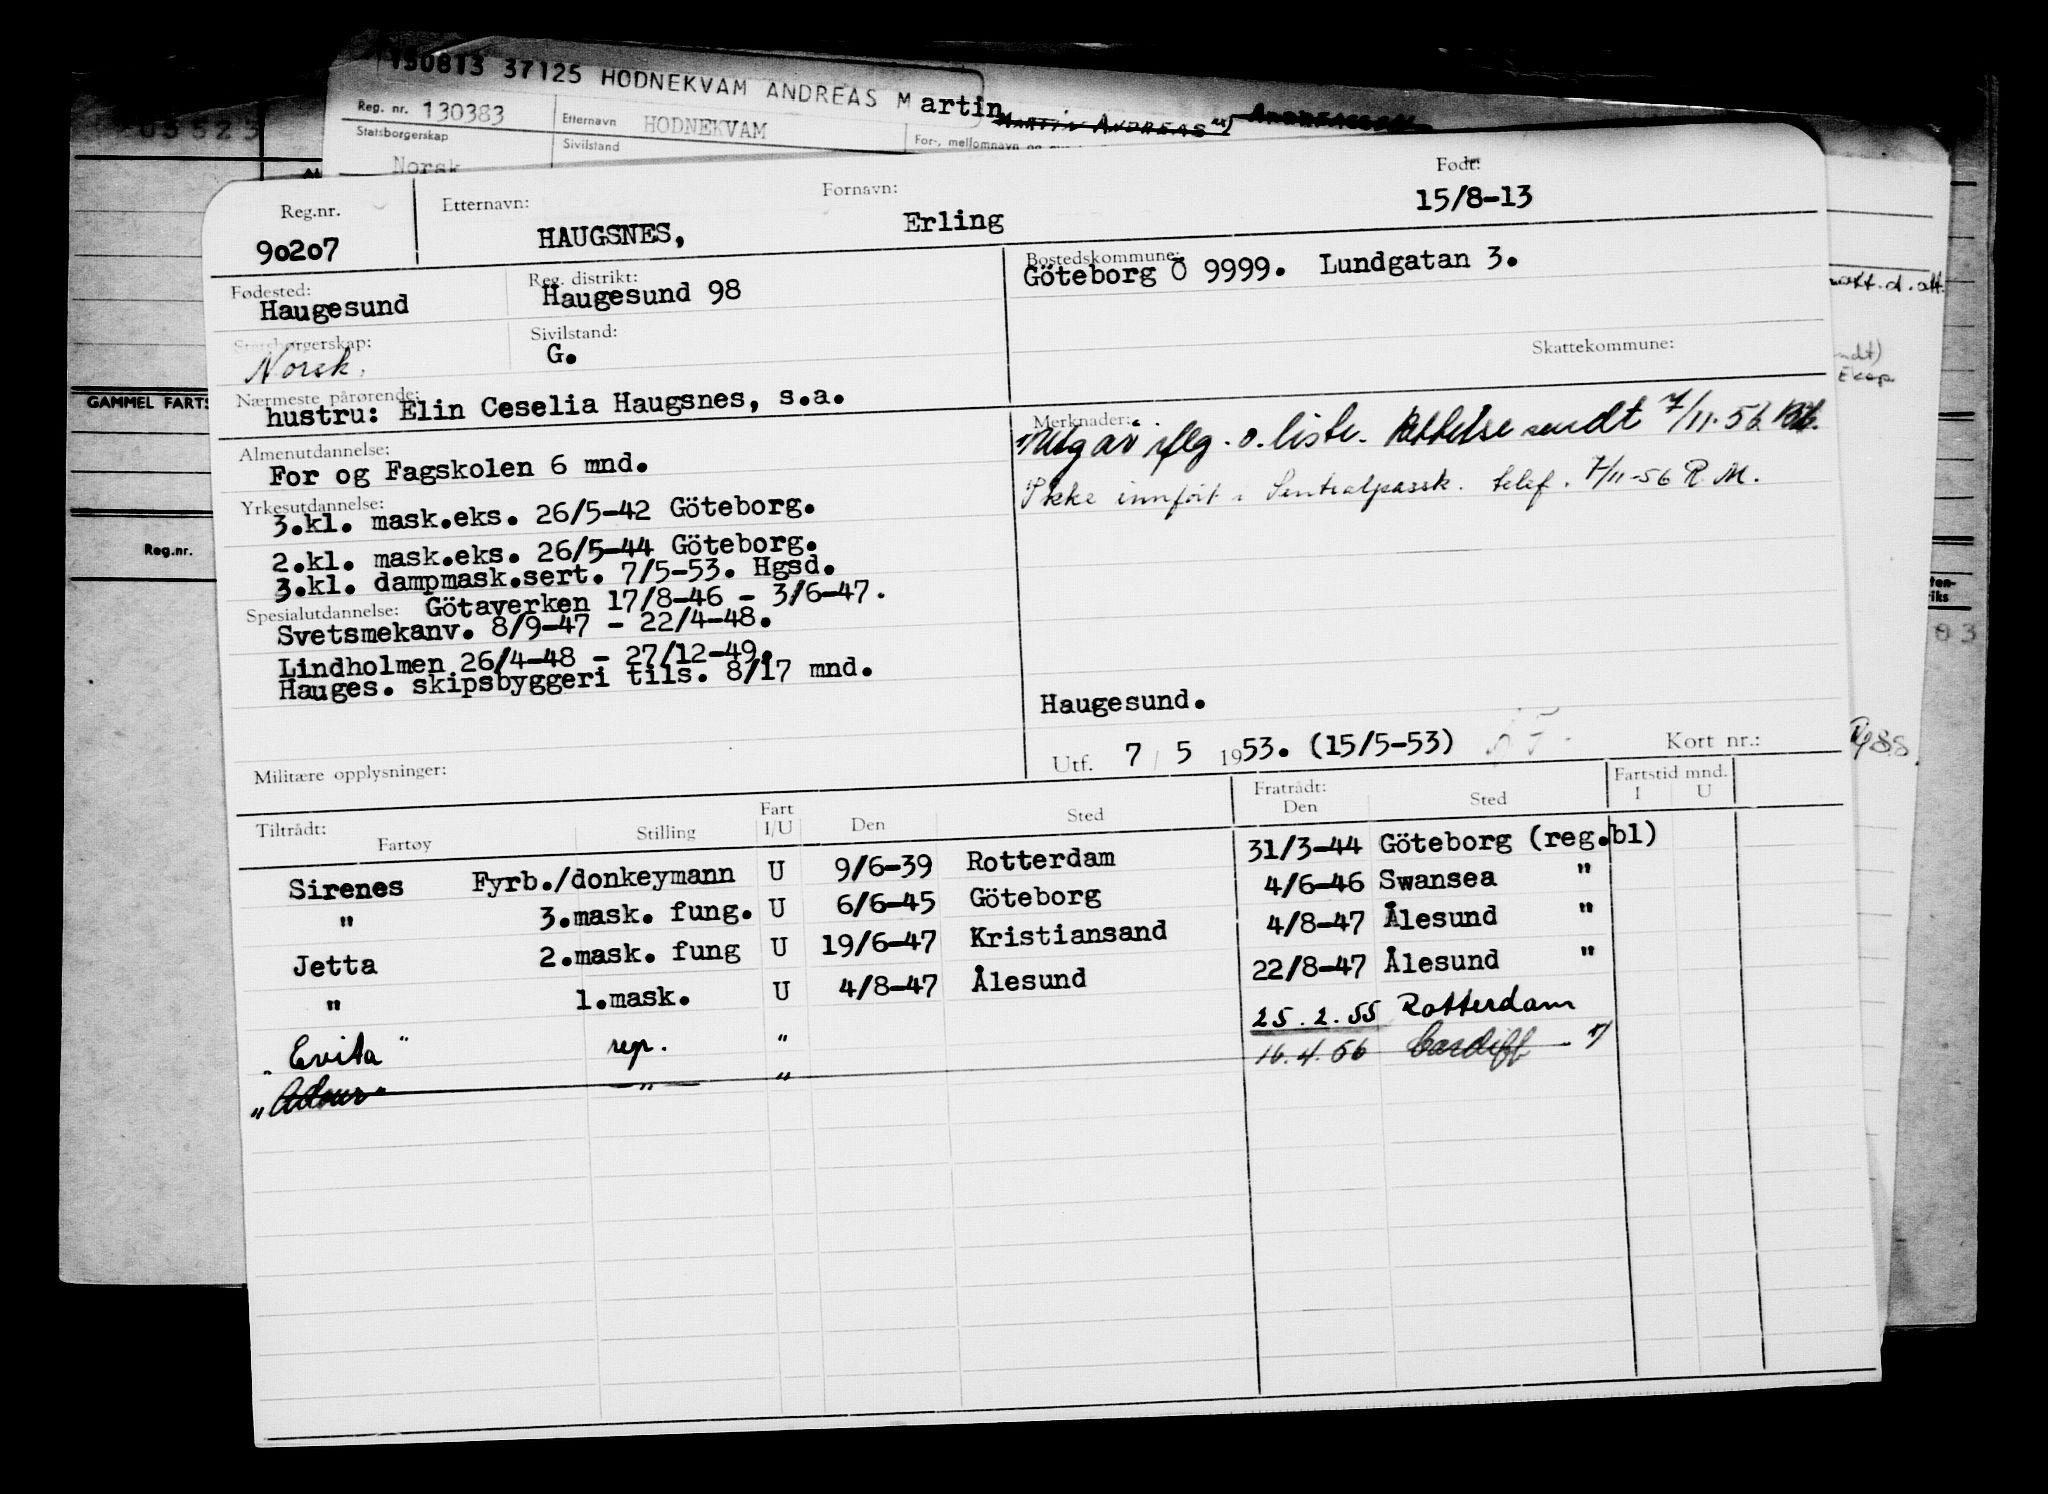 150813 37125 HODNEKVAM ANDREAS Martin
Reg. nr. 130383 Etternavn HODNEKVAM For-, mellomnavn og
Statsborgerskap Sivilstand
Norsk
GAMMEL FARTS
Reg.nr.
Reg.nr. Etternavn: Fornavn: Født:
90207 HAUGSNES, Erling 15/8-13
Fødested: Reg. distrikt: Bostedskommune:
Haugesund Haugesund 98 Göteborg Ö 9999. Lundgatan 3.
Statsborgerskap: Sivilstand: Skattekommune:
Norsk. G.
Nærmeste pårørende: Merknader:
hustru: Elin Ceselia Haugsnes, s.a.
1) Utgår iflg. o. liste. Rettelse sendt 7/11-56
Ikke innført i Sentralpassk. telef. 7/11-56 R.M.
Almenutdannelse:
For og Fagskolen 6 mnd.
Yrkesutdannelse:
3.kl. mask.eks. 26/5-42 Göteborg.
2.kl. mask.eks. 26/5-44 Göteborg.
3.kl. dampmask.sert. 7/5-53. Hgsd.
Spesialutdannelse: Götaverken 17/8-46 - 3/6-47.
Svetsmekanv. 8/9-47 - 22/4-48.
Lindholmen 26/4-48 - 27/12-49.
Hauges. skipsbyggeri tils. 8/17 mnd.
Haugesund.
Utf. 7 / 5 1953. (15/5-53) Kort nr.:
Militære opplysninger:
Tiltrådt: Fratrådt: Fartstid mnd.
Fartøy Stilling Fart I/U Den Sted Den Sted I U
Sirenes Fyrb./donkeymann U 9/6-39 Rotterdam 31/3-44 Göteborg (reg.bl)
" 3.mask. fung. U 6/6-45 Göteborg 4/6-46 Swansea "
Jetta 2.mask. fung U 19/6-47 Kristiansand 4/8-47 Ålesund "
" 1.mask. U 4/8-47 Ålesund 22/8-47 Ålesund "
"Evita" rep. " 25.2.55 Rotterdam
"Adour" " " 16.4.56 Cardiff 1)